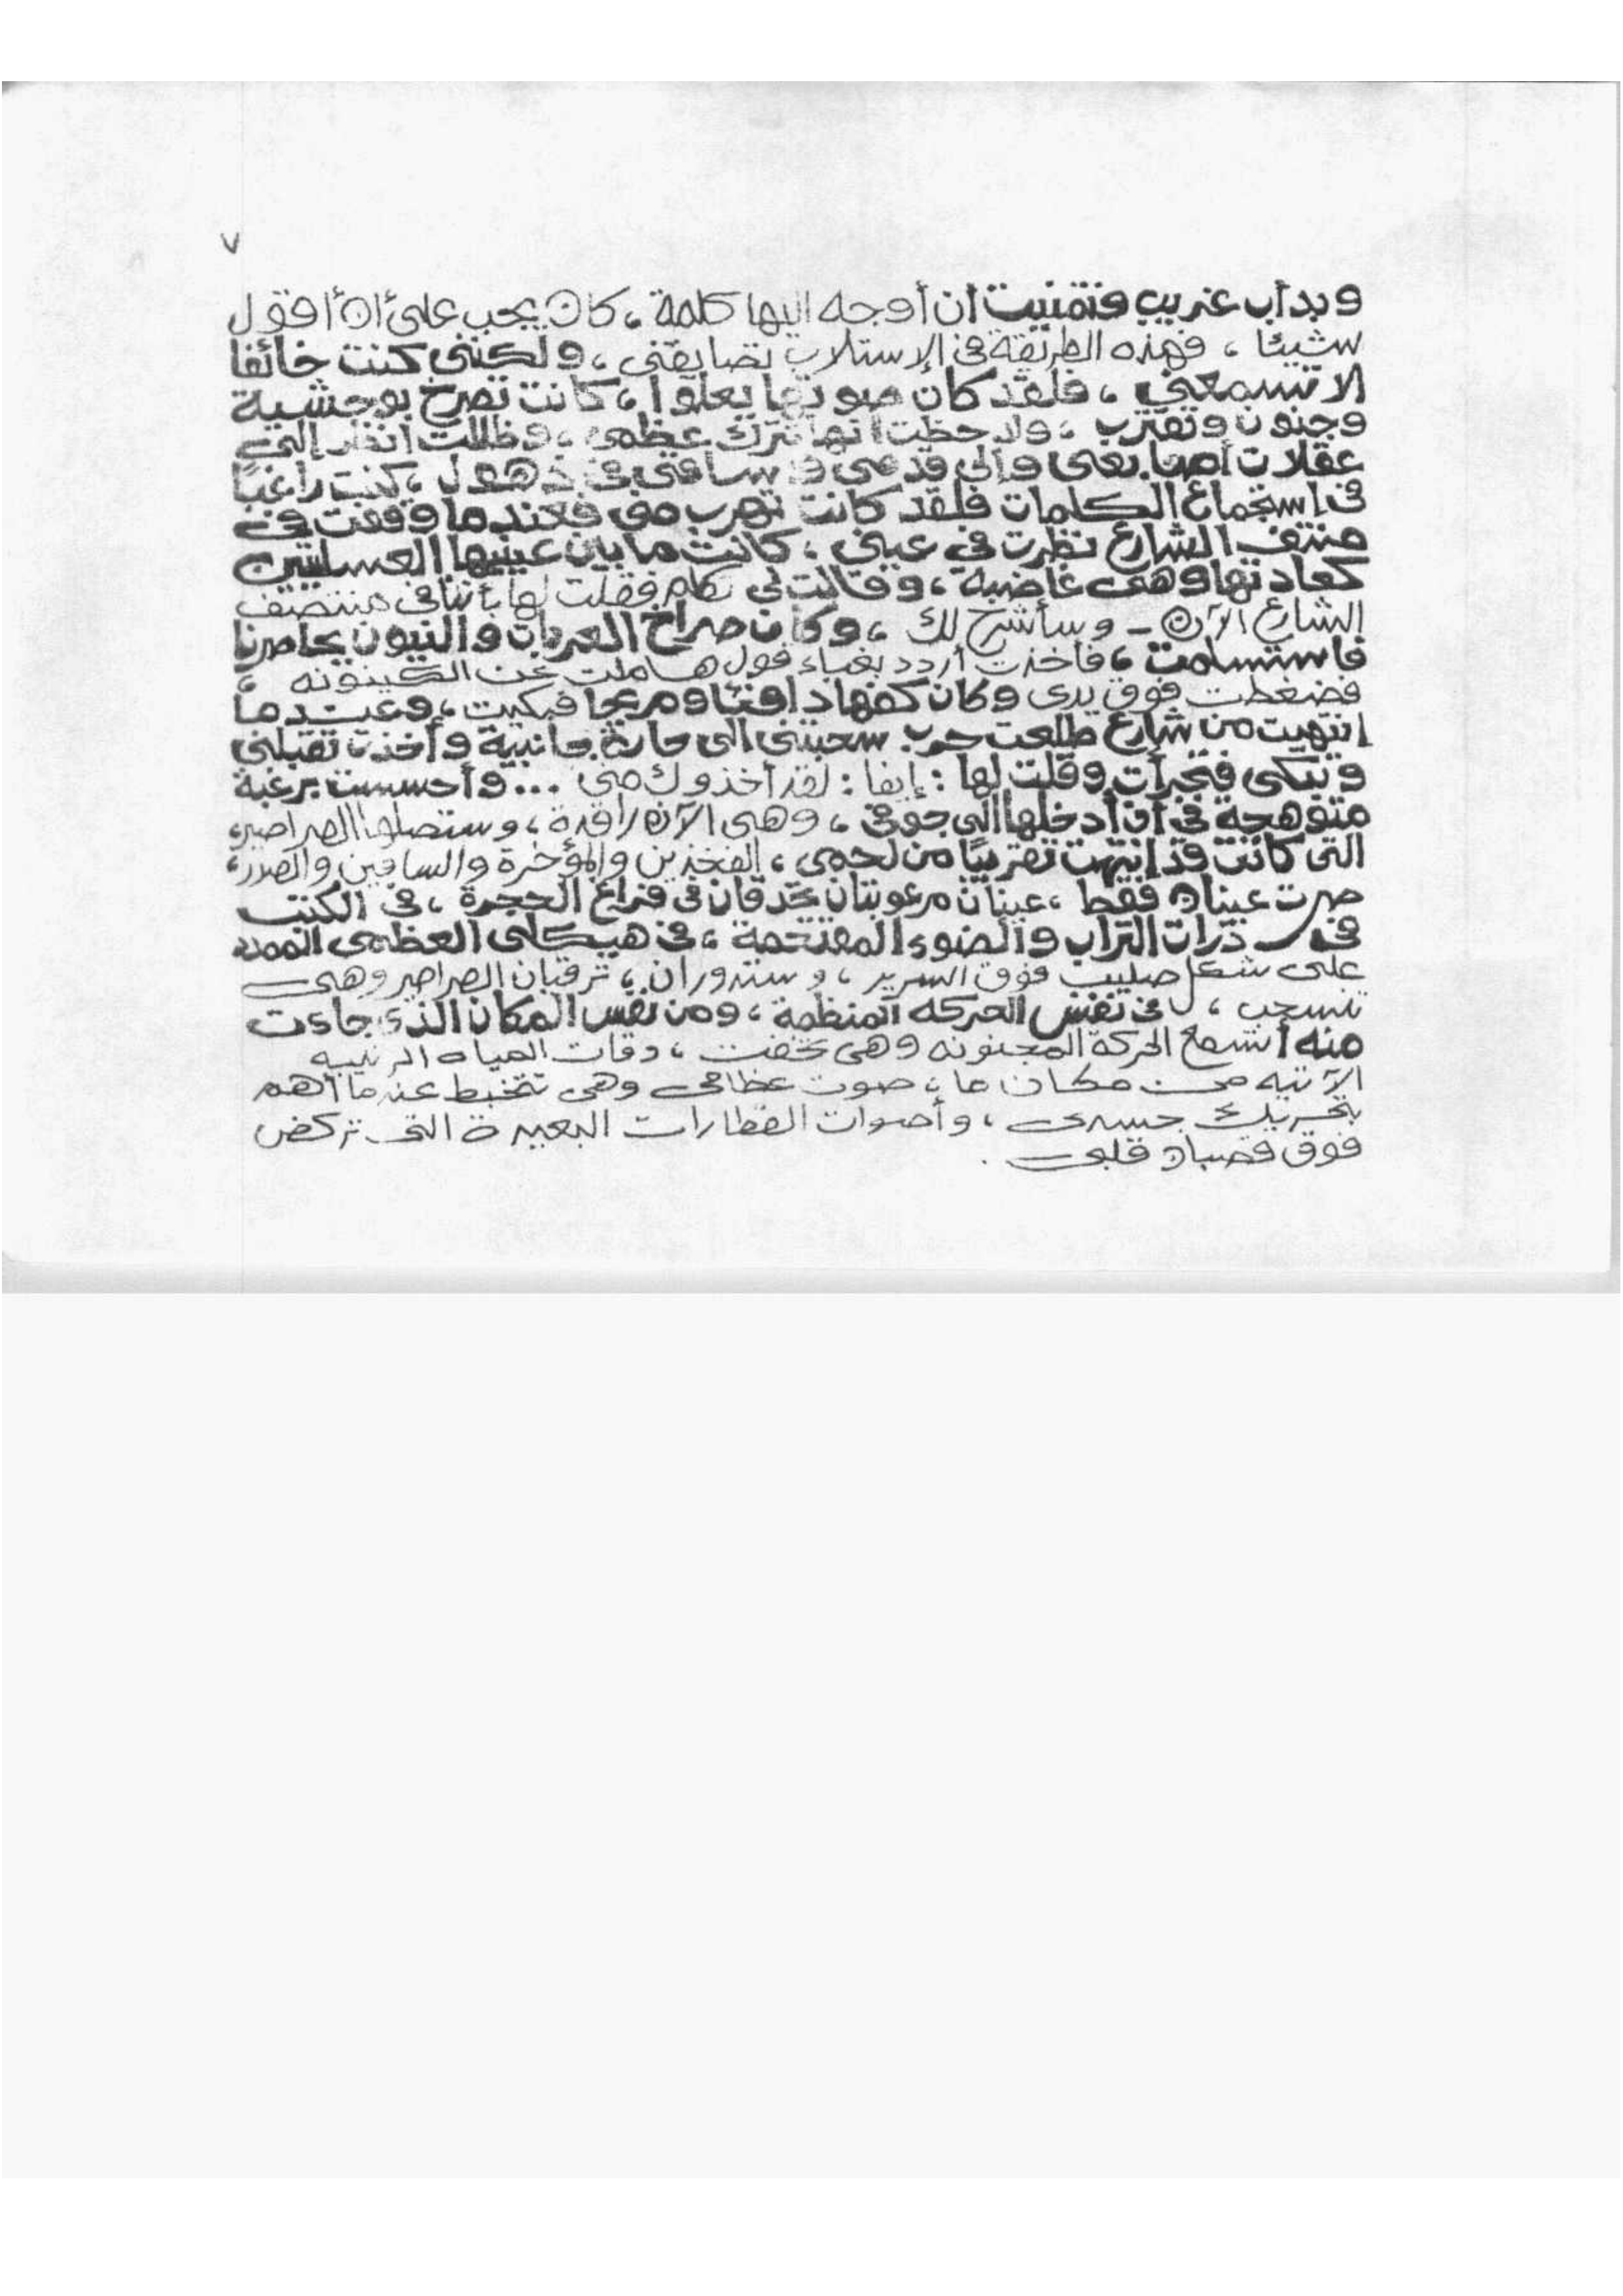 ٧
وبدأب غريب فتمنيت أن أوجه اليها كلمة ، كان يجب علىّ أن أقول
شيئا ، فهذه الطريقة فى الإستلاب تضايقنى ، ولكننى كنت خائفا
الا تسمعنى ، فلقد كان صوتها يعلوا ، كانت تصرخ بوحشية
وجنون وتقترب ، ولاحظت أنها تترك عظمى ، وظللت أنظر إلى
عقلات أصابعى وإلى قدمى وساقى فى ذهول ، كنت راغبًا
فى استجماع الكلمات فلقد كانت تهرب منى فعندما وقفت فى
منتف الشارع نظرت فى عينى ، كانت ما بين عينيها العسليتين
كعادتها وهى غاضبة ، وقالت لى تكلم فقلت لها بأننا فى منتصف
الشارع الآن - وسأشرح لك ، وكان صراخ العربات والنيون يحاصرنا
فاستسلمت ، فأخذت أردد بغباء قول هاملت عن الكينونه ،
فضغطت فوق يدى وكان كفها دافئا ومرتجا فبكيت ، وعندما
انتهيت من شارع طلعت حرب سحبتنى الى حارة جانبية وأخذت تقبلنى
وتبكى فتجرأت وقلت لها : إيفا : لقد أخذوك منى ... وأحسست برغبة
متوهجة فى أن أدخلها الى جوفى ، وهى الآن راقدة ، وستصلها الصراصير ،
التى كانت قد إنتهت تقريبًا من لحمى ، الفخذين والمؤخرة والساقين والصدر ،
صرت عينان فقط ، عينان مرعوبتان تحدقان فى فراغ الحجرة ، فى الكنت
فى ذرات التراب والضوء المقتحمة ، فى هيكلى العظمى الممدد
على شكل صليب فوق السرير ، وستدوران ، ترقبان الصراصير وهى
تنسحب ، فى نفس الحركه المنظمة ، ومن نفس المكان الذى جاءت
منه أسمع الحركة المجنونه وهى تخفت ، دقات المياه الرتيبه
الآتيه من مكان ما ، صوت عظامى وهى تتخبط عندما أهم
بتحريك جسدى ، وأصوات القطارات البعيدة التى تركض
فوق قضبان قلبى .